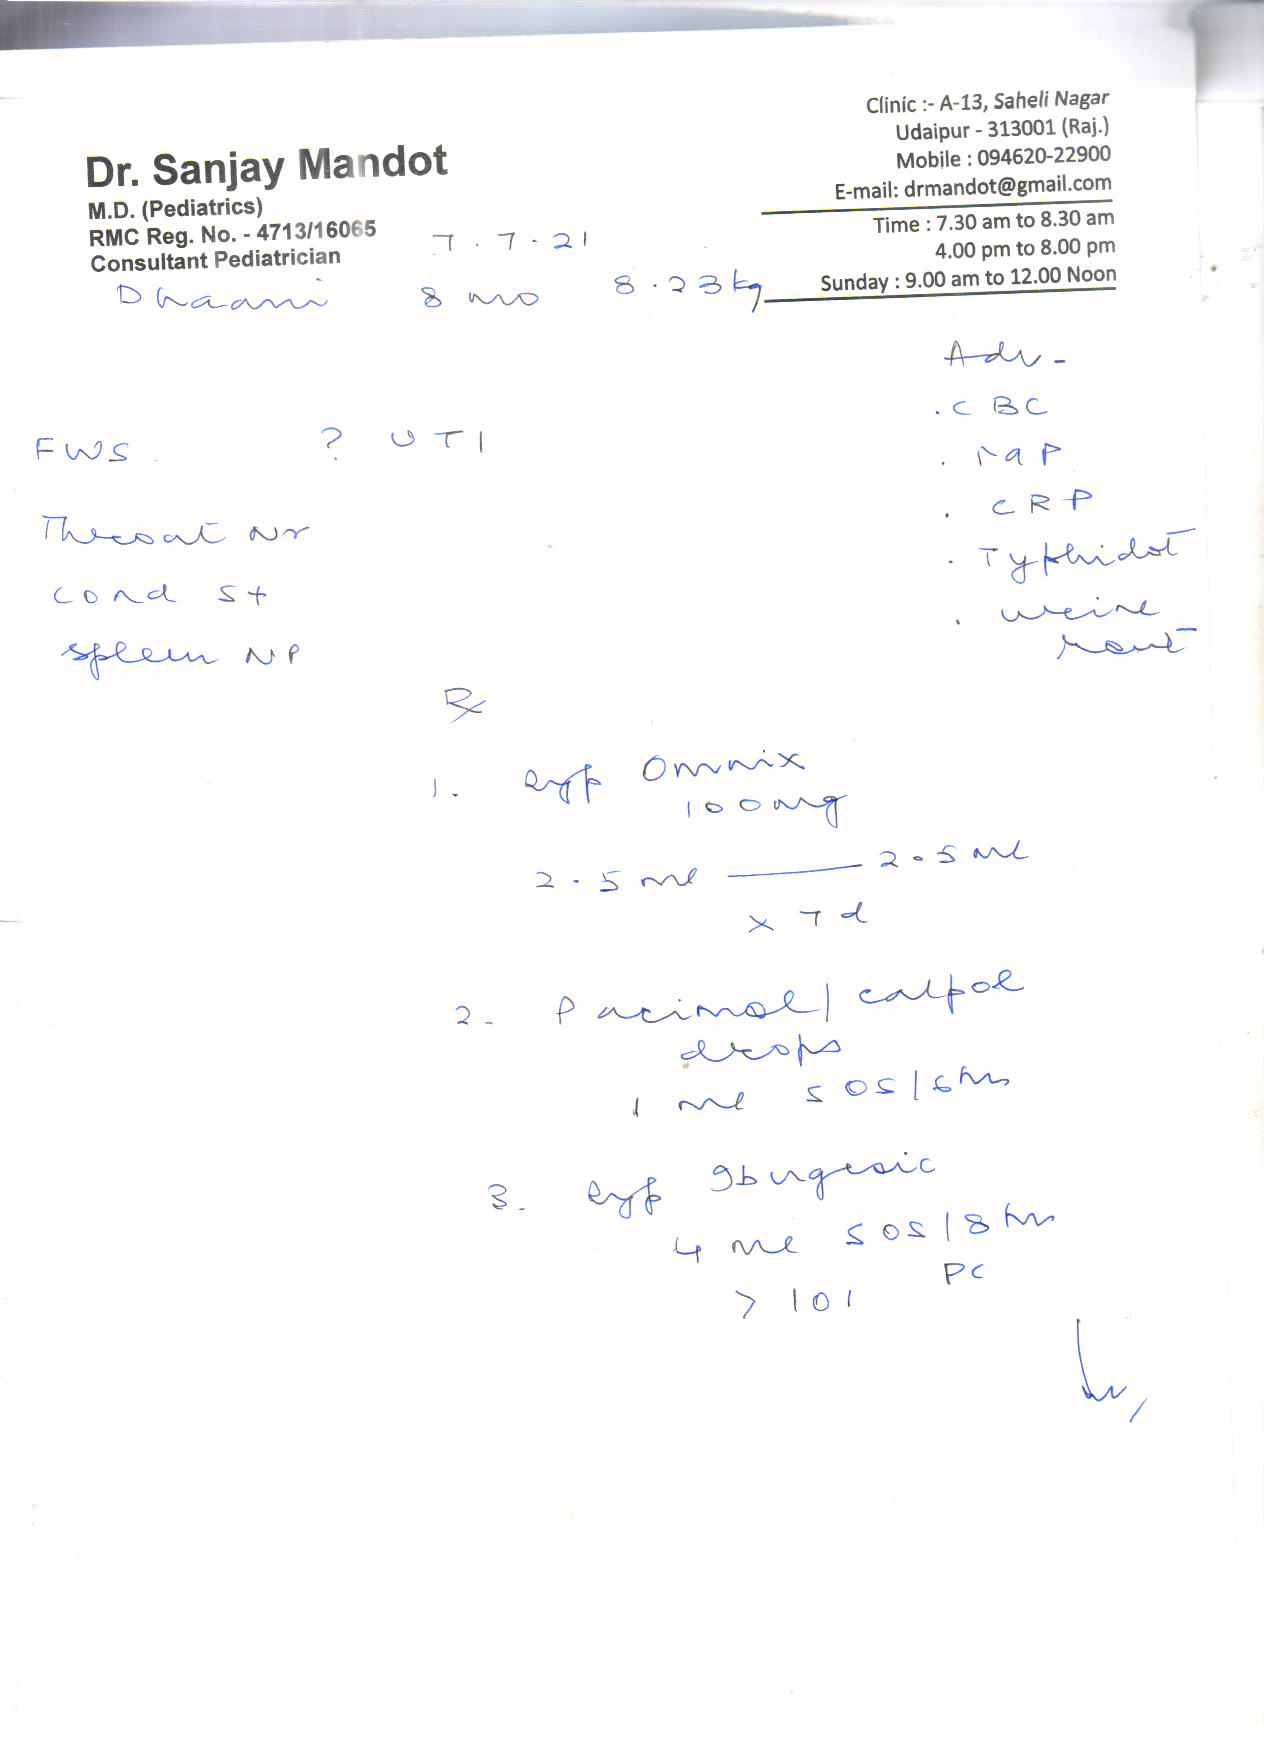 Dr. Sanjay Mandot
M.D. (Pediatrics)
RMC Reg. No. - 4713/16065
Consultant Pediatrician
Clinic :- A-13, Saheli Nagar
Udaipur - 313001 (Raj.)
Mobile : 094620-22900
E-mail: drmandot@gmail.com
Time : 7.30 am to 8.30 am
4.00 pm to 8.00 pm
Sunday : 9.00 am to 12.00 Noon
7.7.21
Dhaani 8 mo 8.23kg
FWS ? UTI
Throat Nr
Cond St
Spleen NP
Adv -
. CBC
. MP
. CRP
. Typhidot
. urine
Rx
1. Syp Omnix
100mg
2.5 ml —— 2.5 ml
x 7 d
2. Pacimol/ calpol
drops
1 ml SOS/6hrs
3. Syp Ibugesic
4 ml SOS/8hrs
PC
> 101